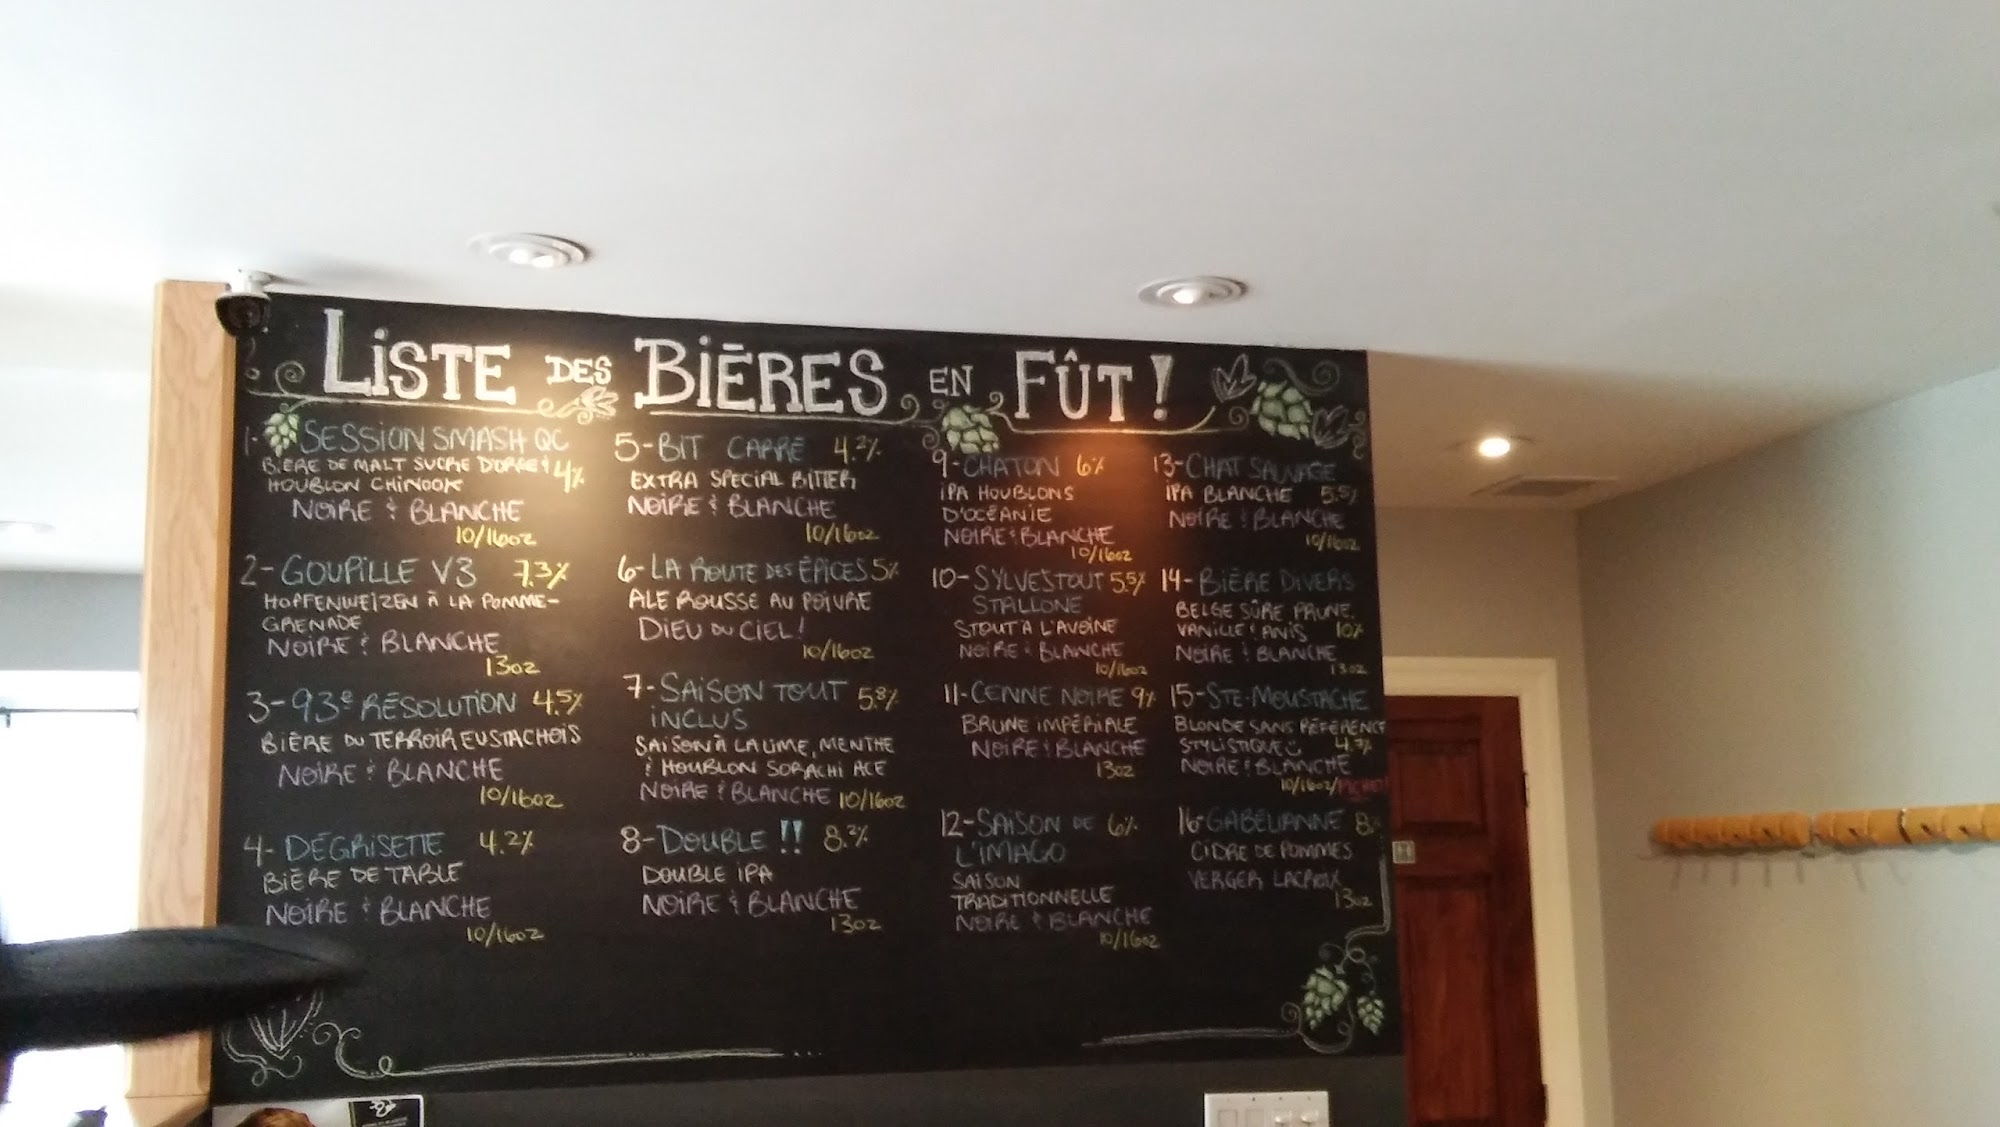 LISTE DES BIÈRES EN FÛT!
1- SESSION SMASH QC
BIÈRE DE MALT SUCRE D'ORGE & 4%
HOUBLON CHINOOK
NOIRE & BLANCHE
10/16oz
2- GOUPILLE V3 7.3%
HOPFENWEIZEN À LA POMME-
GRENADE
NOIRE & BLANCHE
13oz
3- 93e RÉSOLUTION 4.5%
BIÈRE DU TERROIR EUSTACHOIS
NOIRE & BLANCHE
10/16oz
4- DÉGRISETTE 4.2%
BIÈRE DE TABLE
NOIRE & BLANCHE
10/16oz
5- BIT CARRÉ 4.2%
EXTRA SPECIAL BITTER
NOIRE & BLANCHE
10/16oz
6- LA ROUTE DES ÉPICES 5%
ALE ROUSSE AU POIVRE
DIEU DU CIEL!
10/16oz
7- SAISON TOUT 5.8%
INCLUS
SAISON À LA LIME, MENTHE
& HOUBLON SORACHI ACE
NOIRE & BLANCHE 10/16oz
8- DOUBLE !! 8.2%
DOUBLE IPA
NOIRE & BLANCHE
13oz
9- CHATON 6%
IPA HOUBLONS
D'OCÉANIE
NOIRE & BLANCHE
10/16oz
10- SYLVESTOUT 5.5%
STALLONE
STOUT À L'AVOINE
NOIRE & BLANCHE
10/16oz
11- CENNE NOIRE 9%
BRUNE IMPÉRIALE
NOIRE & BLANCHE
13oz
12- SAISON DE 6%
L'IMAGO
SAISON
TRADITIONNELLE
NOIRE & BLANCHE
10/16oz
13- CHAT SAUVAGE
IPA BLANCHE 5.5%
NOIRE & BLANCHE
10/16oz
14- BIÈRE DIVERS
BELGE SÛRE PRUNE,
VANILLE & ANIS 10%
NOIRE & BLANCHE
13oz
15- STE-MOUSTACHE
BLONDE SANS RÉFÉRENCE
STYLISTIQUE 4.7%
NOIRE & BLANCHE
10/16oz/
16- GABELIANNE 8%
CIDRE DE POMMES
VERGER LACROIX
13oz